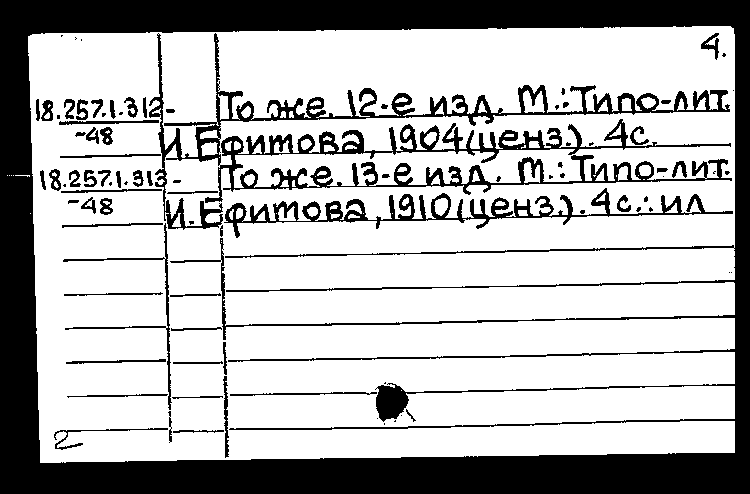 4.
18.257.1.312- То же. 12-е изд. М.: Типо-лит.
-48 И. Ефитова, 1904 (ценз.). 4с.
18.257.1.313- То же. 13-е изд. М.: Типо-лит.
-48 И. Ефитова, 1910 (ценз.). 4с.: ил
2